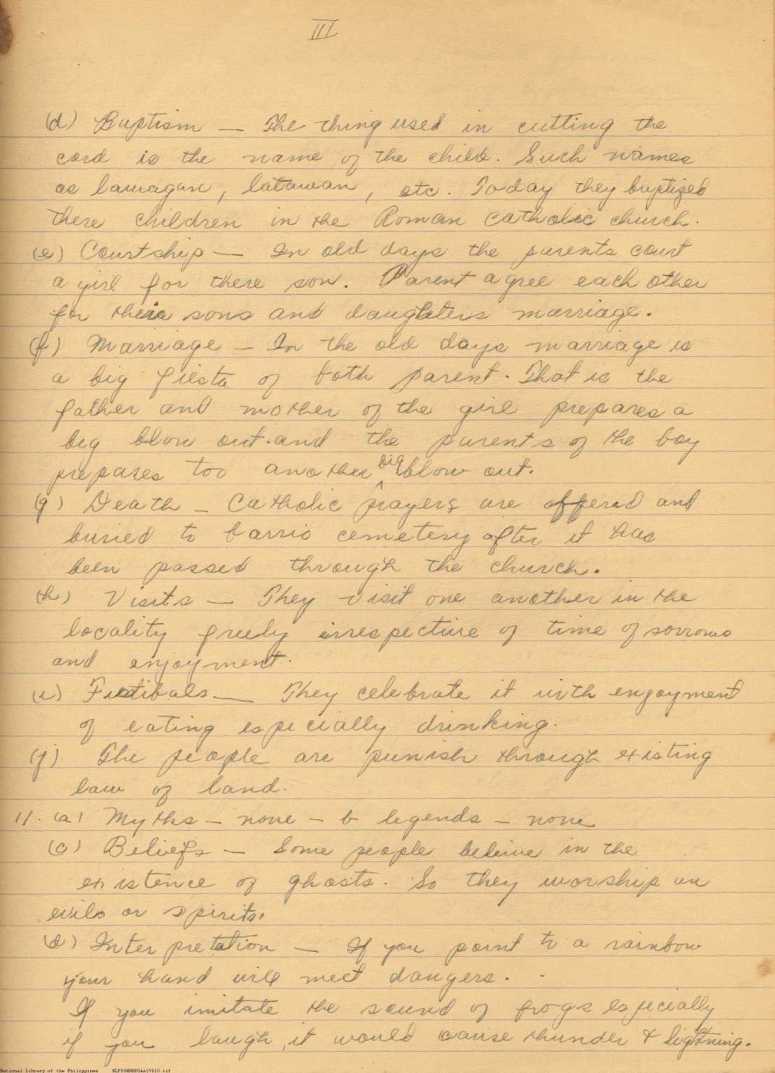 III
(d) Baptism — The thing used in cutting the
cord is the name of the child. Such names
as lawagan, latawan, etc. Today they baptized
there children in the Roman Catholic church.
(e) Courtship — In old days the parents court
a girl for there son. Parent agree each other
for their sons and daughters marriage.
(f) Marriage — In the old days marriage is
a big fiesta of both parent. That is the
father and mother of the girl prepares a
big blow out. and the parents of the boy
prepares too another big blow out.
(g) Death — Catholic prayers are offered and
buried to barrio cemetery after it has
been passed through the church.
(h) Visits — They visit one another in the
locality freely irrespective of time of sorrows
and enjoyment.
(i) Festibals — They celebrate it with enjoyment
of eating especially drinking.
(j) The people are punish through existing
law of land.
11. (a) Myths — none — b legends — none
(c) Beliefs — Some people believe in the
existence of ghosts. So they worship on
evils or spirits.
(d) Interpretation — If you point to a rainbow
your hand will meet dangers.
If you imitate the sound of frogs especially
if you laugh, it would cause thunder & lightning.
National Library of the Philippines